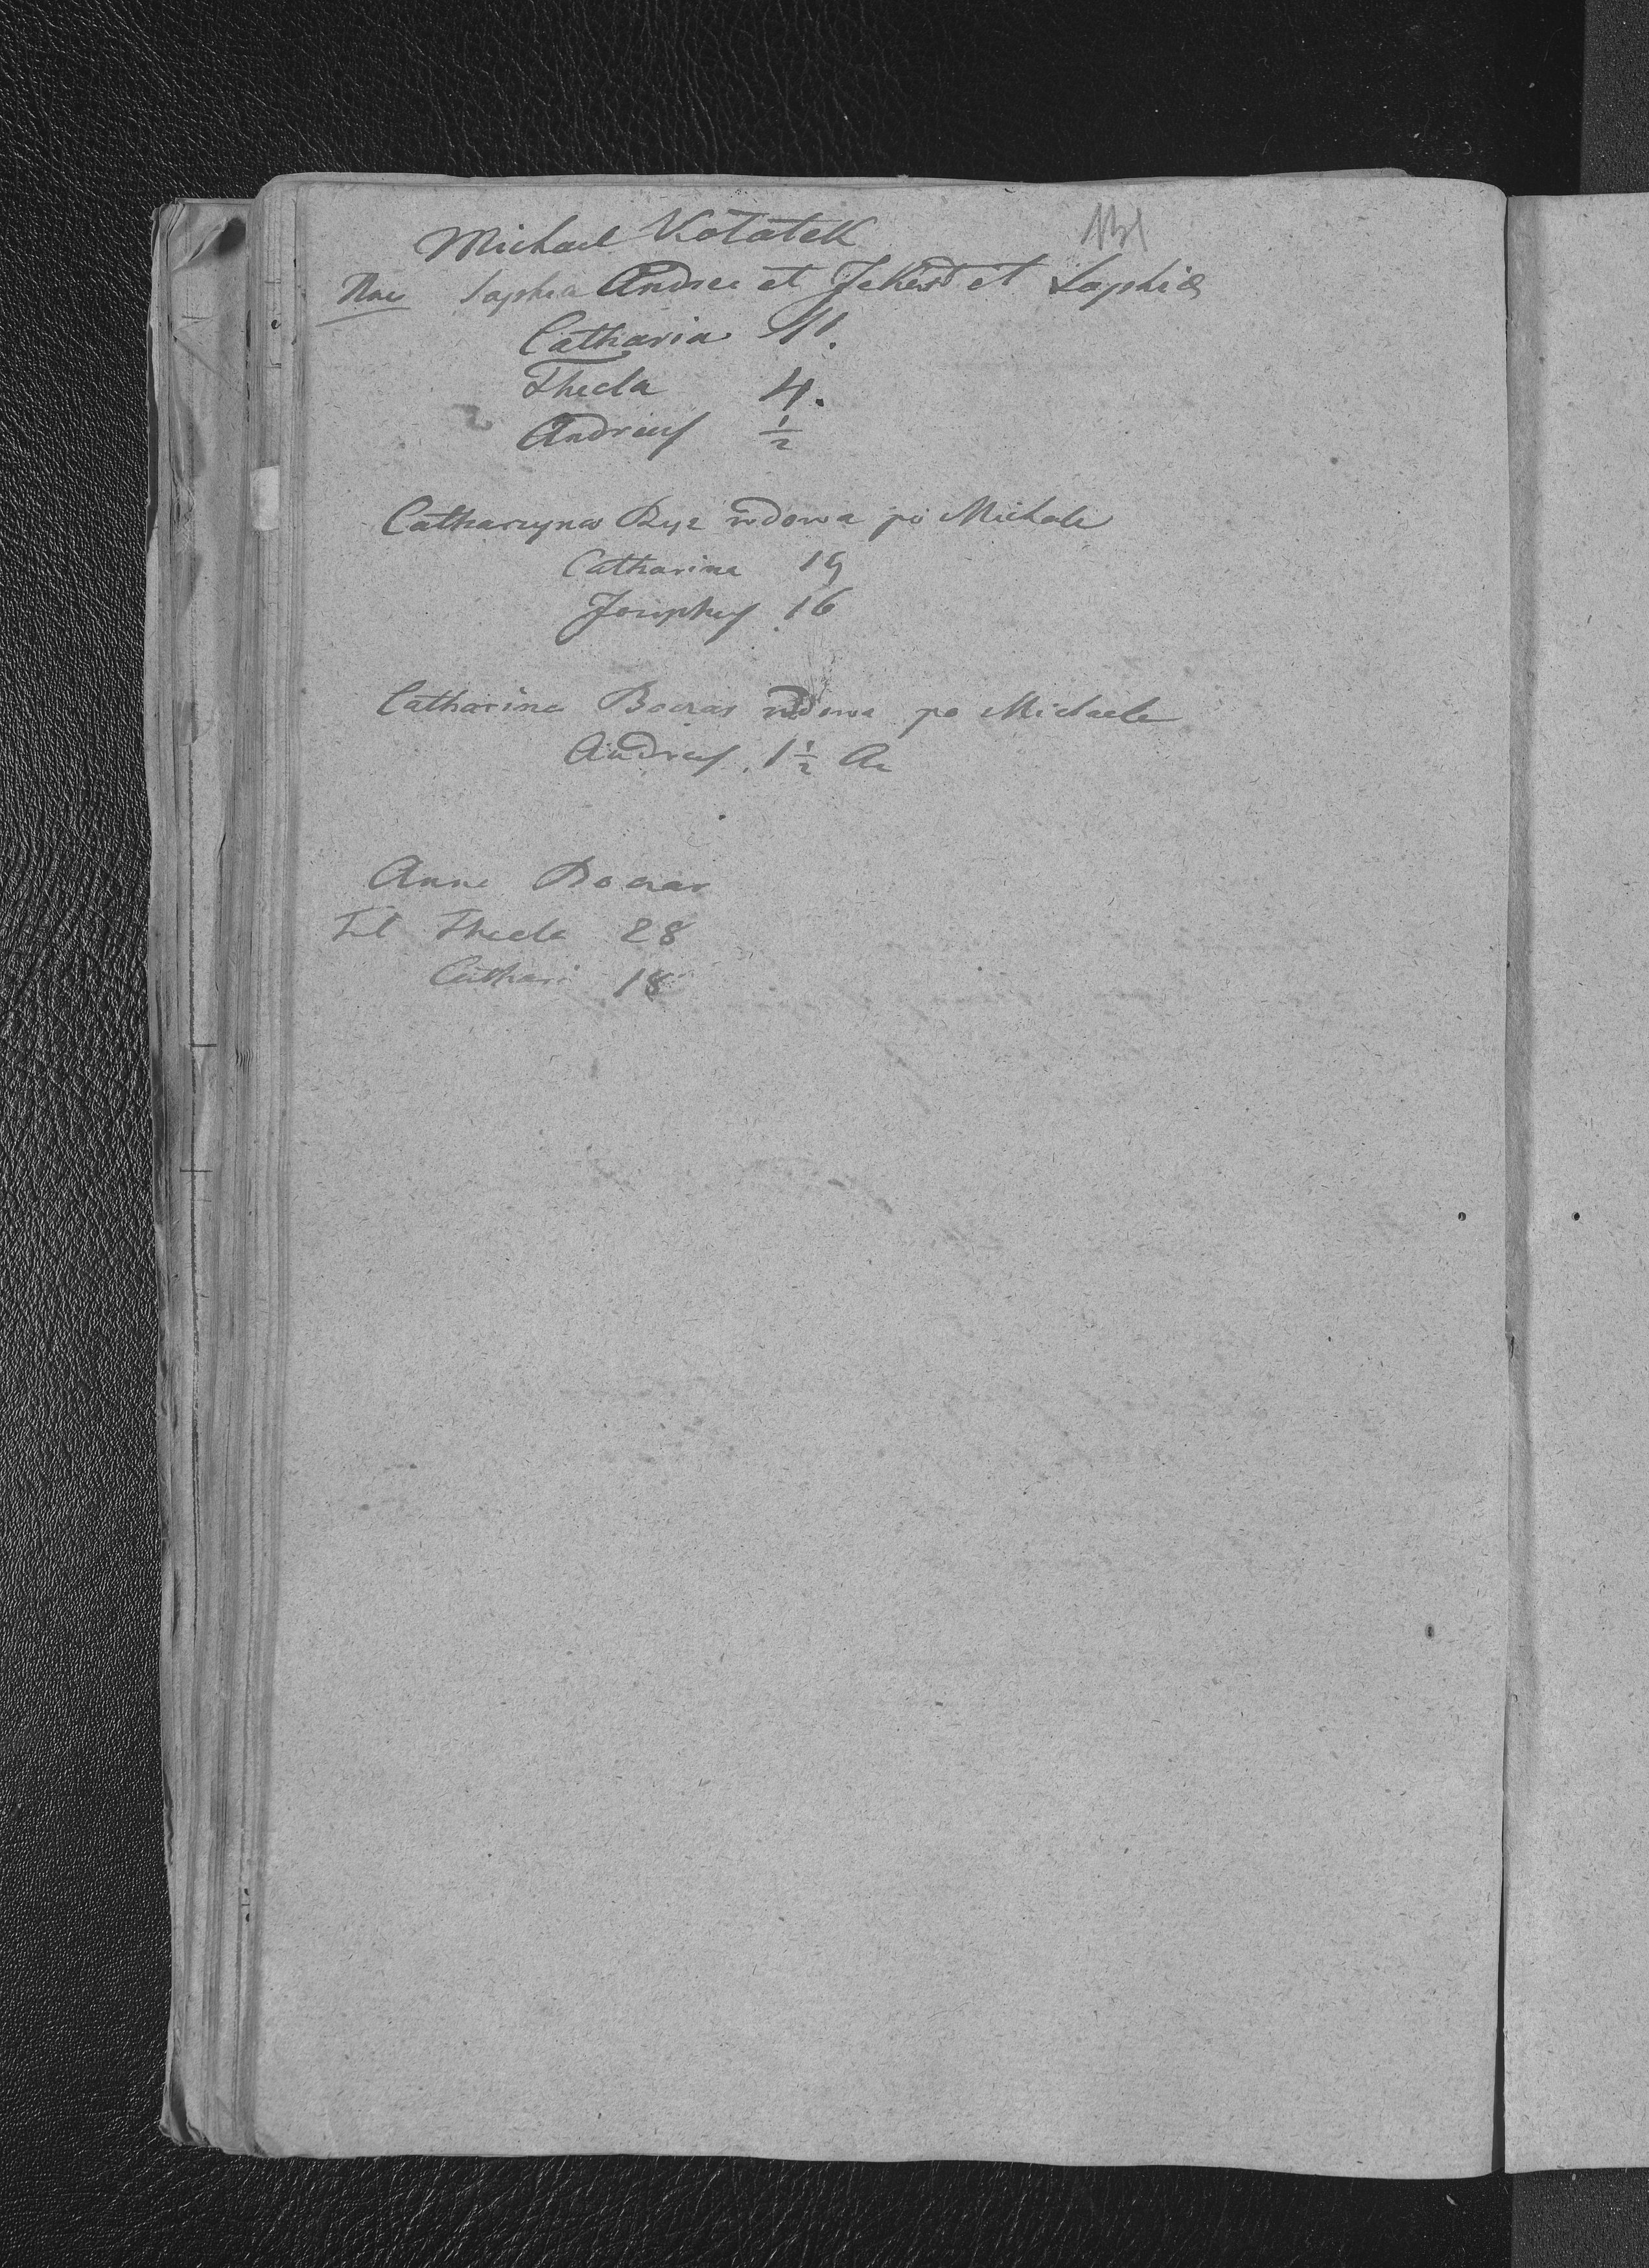 Michael Kotatek
Sophia Andrea et et Sophia
Catharia 11.
Thecla 4.
Andreus 1/2
Catharzyna Byz wdowa po Michale
Catharina 19
Josephus 16
Catharina Bocras wdowa po Michaele
Andreus 1 1/2 An
Anna Bocras
Fil Thecla 28
Cathari 18